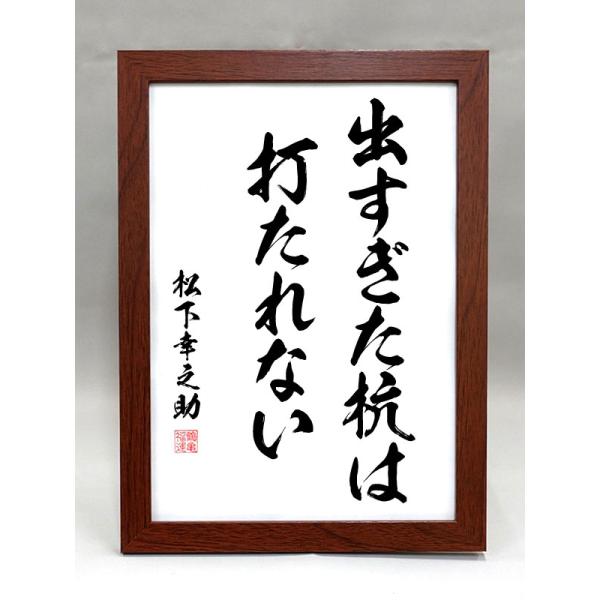 出すぎた杭は
打たれない
松下幸之助